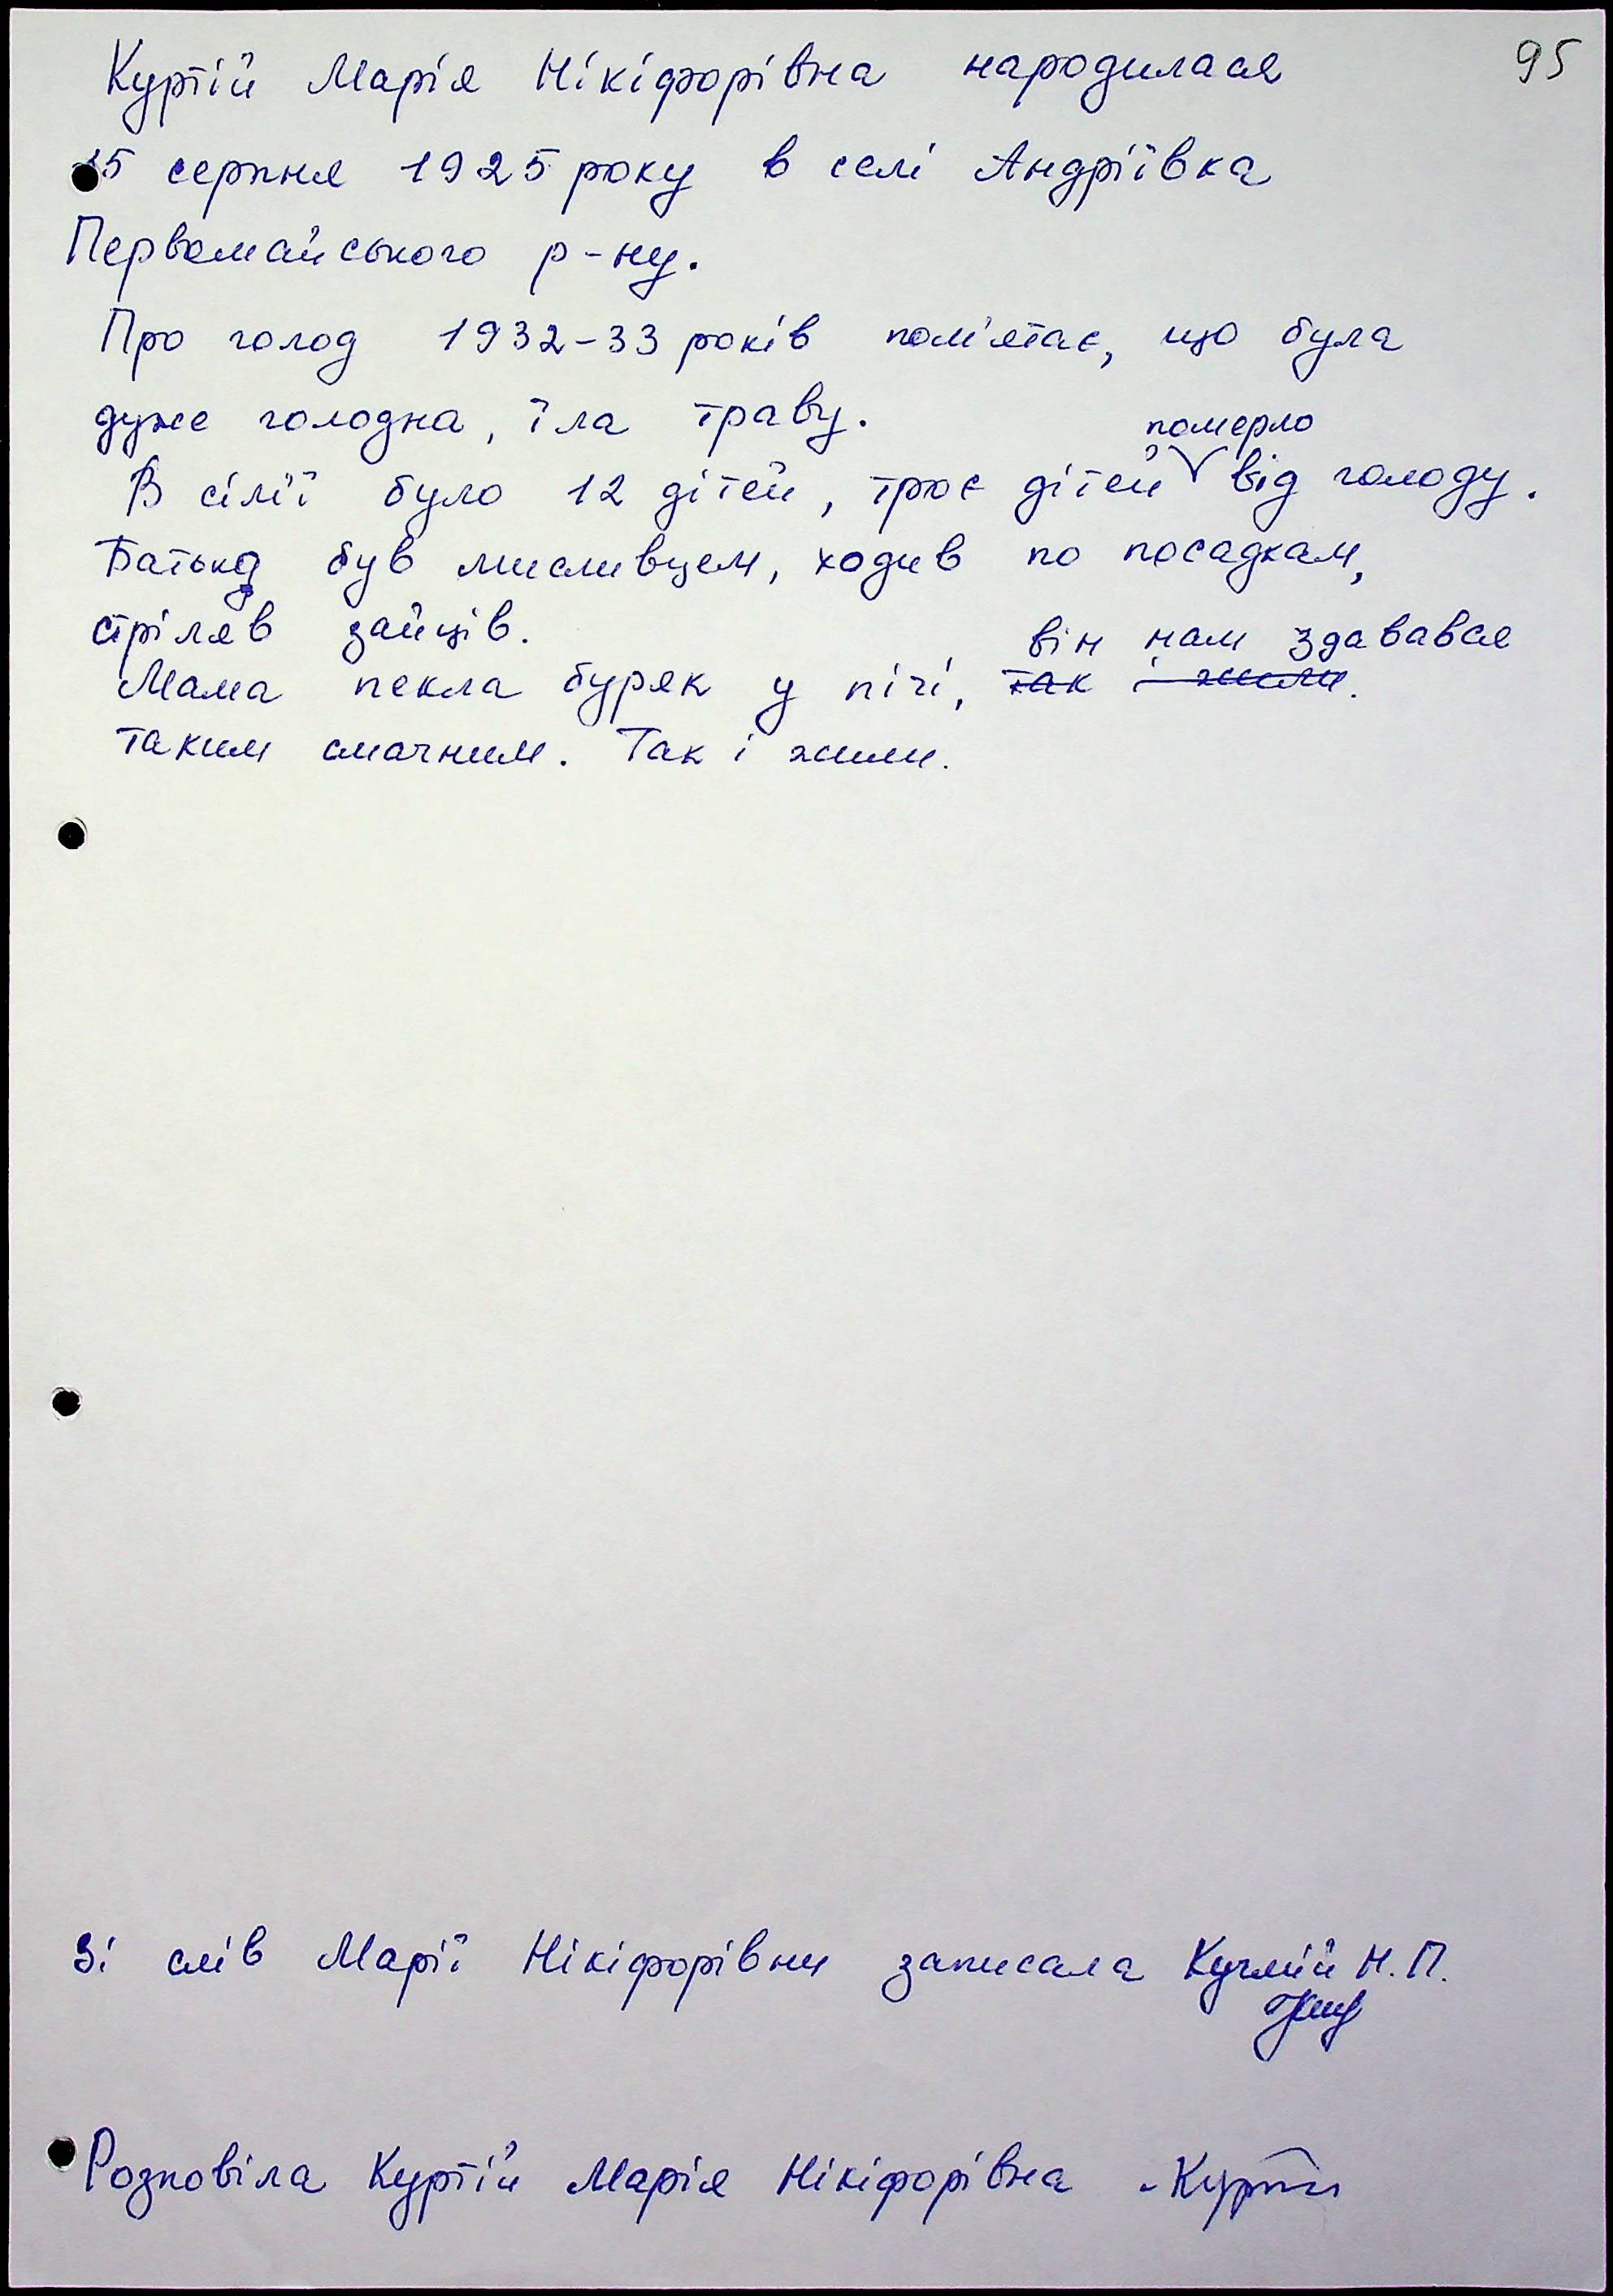 95
Куртій Марія Нікіфорівна народилася
15 серпня 1925 року в селі Андріївка
Первомайського р-ну.
Про голод 1932-33 років пам'ятає, що була
дуже голодна, їла траву.
померло
В сім'ї було 12 дітей, троє дітей від голоду.
Батько був мисливцем, ходив по посадкам,
стріляв зайців.
він нам здавався
Мама пекла буряк у пічі, так і жили.
таким смачним. Так і жили.
Зі слів Марії Нікіфорівни записала Кучмій Н.П.
Розповіла Куртій Марія Нікіфорівна